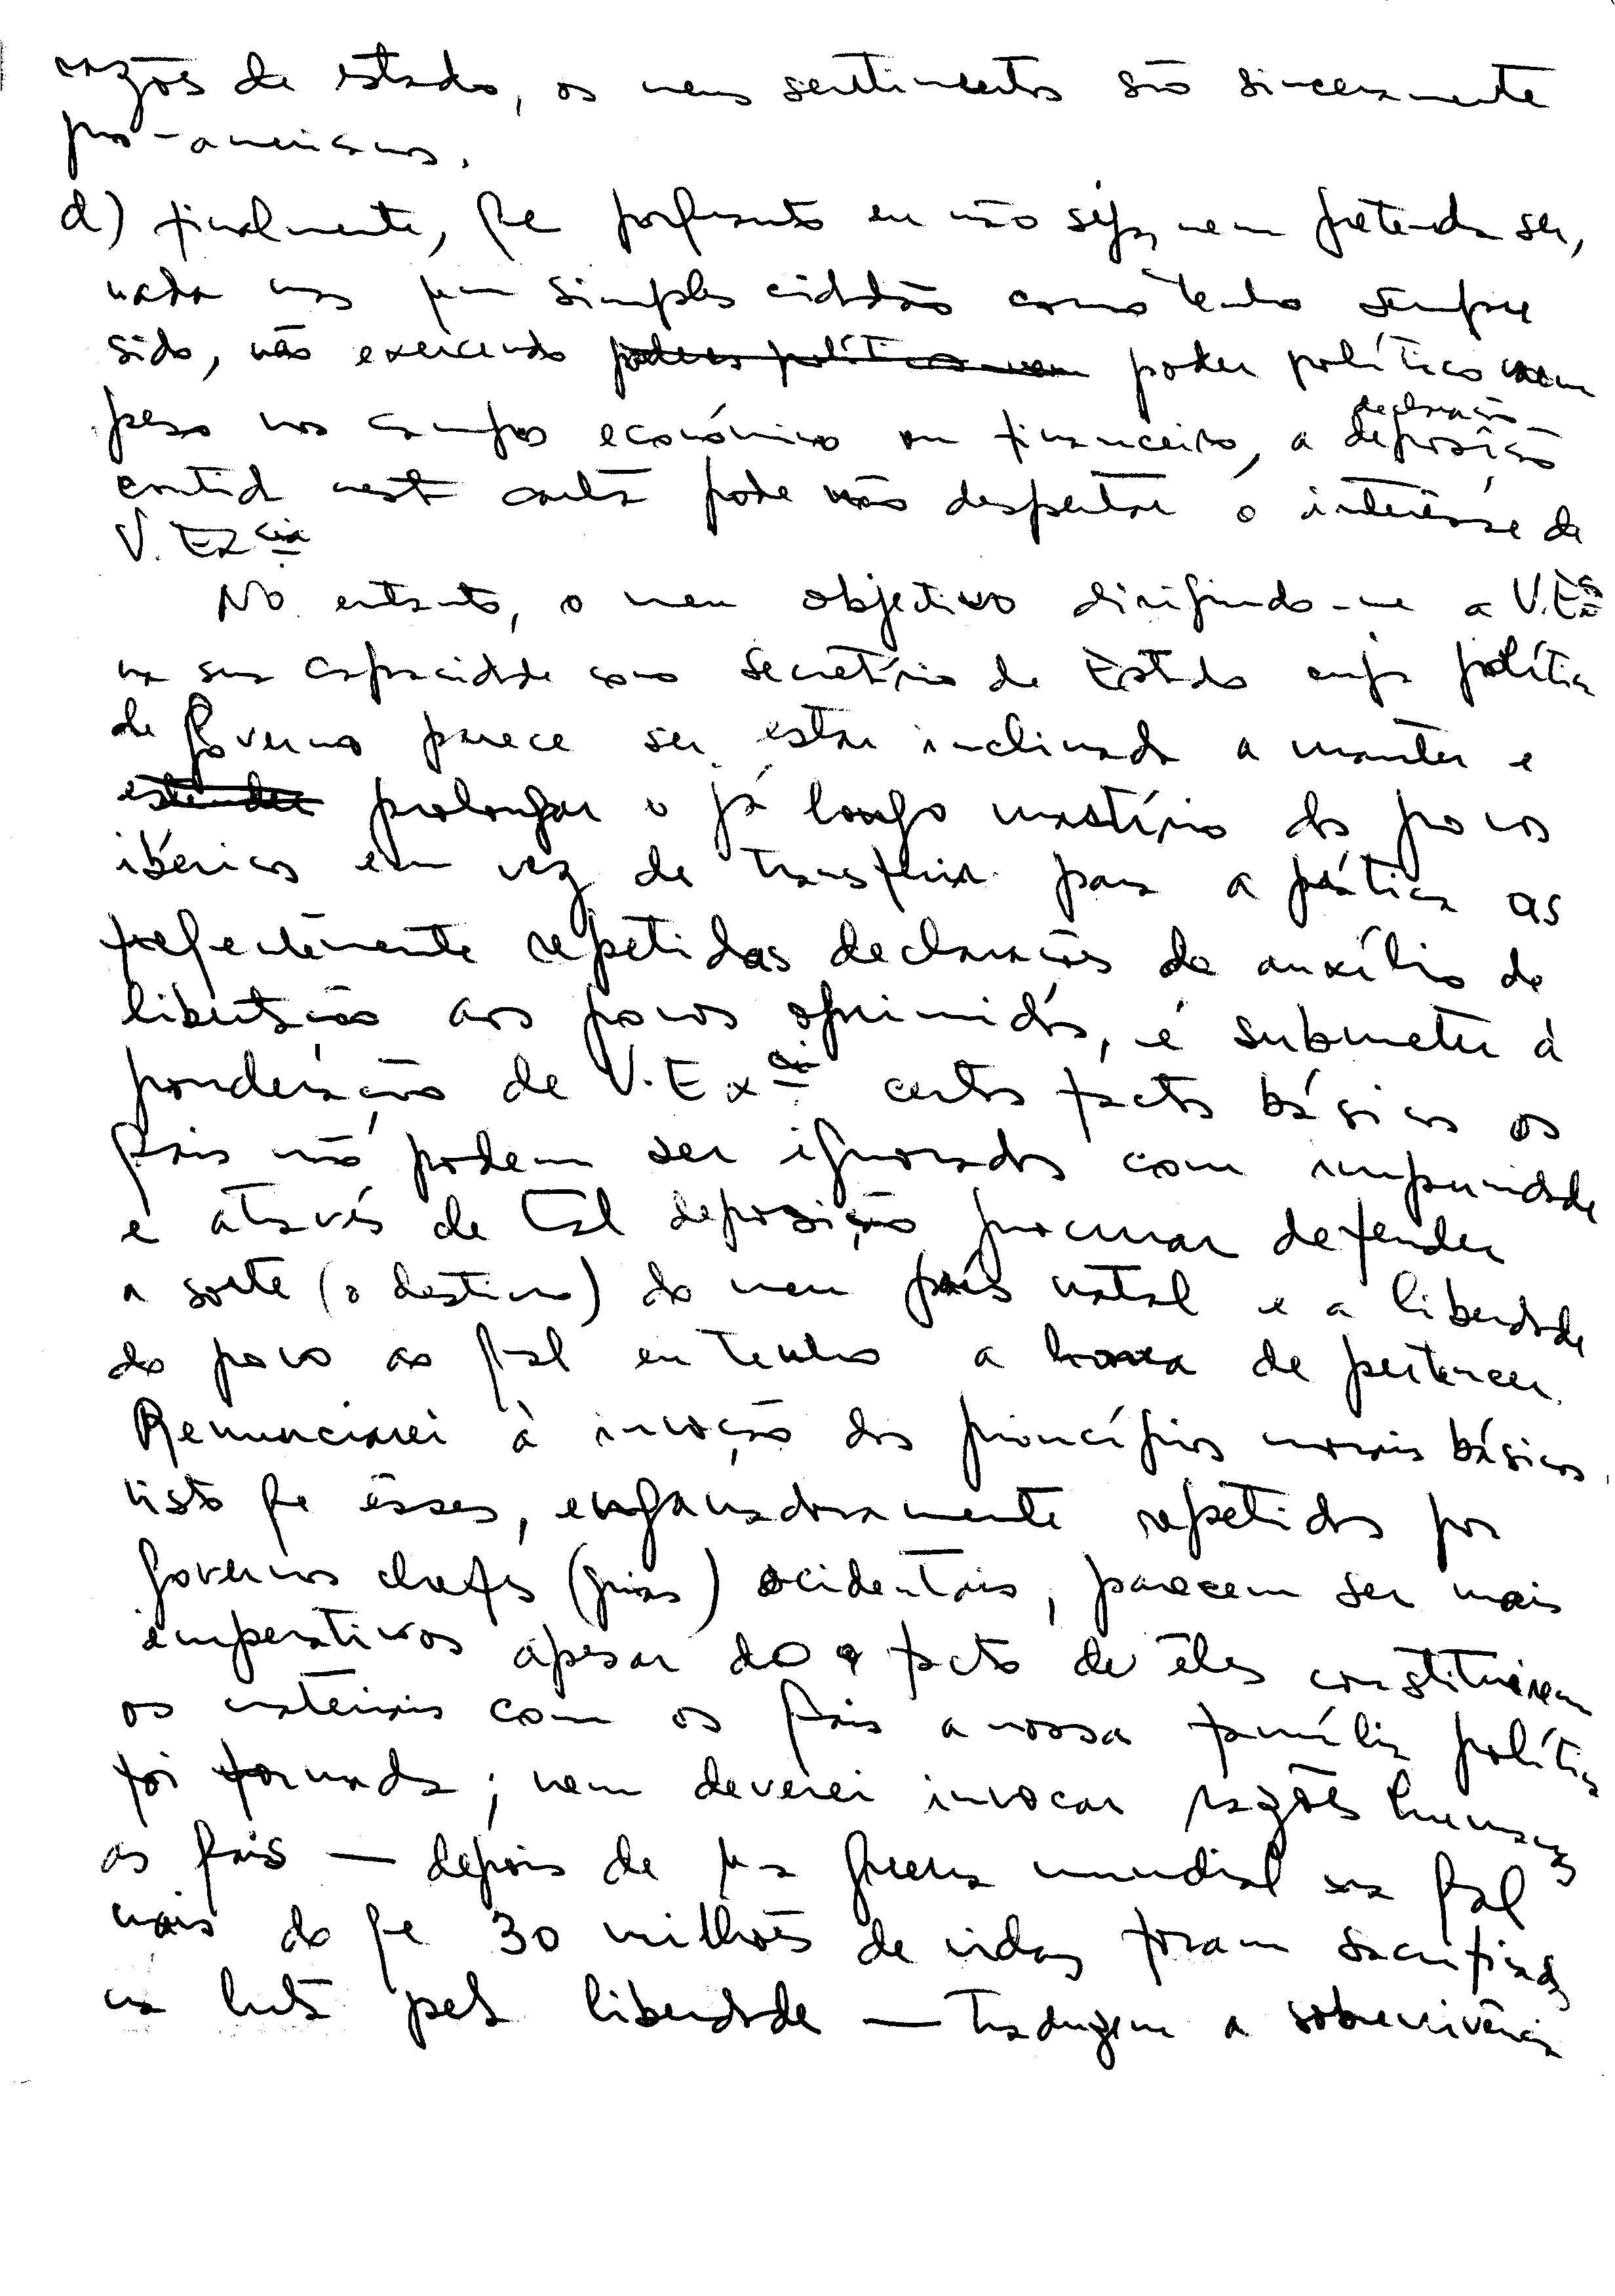 razões de estado, os meus sentimentos são sinceramente
pro-americanos.
d) finalmente, que porquanto eu não seja, nem pretenda ser,
nada mas um simples cidadão como tenho sempre
sido, não exercendo poderes políticos nem poder político nem
peso nos campos económico ou financeiro, a deposição
declaração
contida nesta carta pode não despertar o interêsse de
V. Excia
No entanto, o meu objectivo dirigindo-me a V. Exa
na sua capacidade como Secretário de Estado cuja política
de Governo parece ser estar inclinada a manter e
estender prolongar o já longo martírio dos povos
ibéricos em vez de transferir para a prática as
frequentemente repetidas declarações de auxílio de
libertação aos povos oprimidos, é submeter à
ponderação de V. Excia certos factos básicos os
quais não podem ser ignorados com impunidade
e através de tal deposição procurar defender
a sorte (o destino) do meu país natal e a liberdade
do povo ao qual eu tenho a honra de pertencer.
Renunciarei à invocação dos princípios morais básicos,
visto que êsses, enganadoramente repetidos por
governos chefes (guias) ocidentais, parecem ser mais
imperativos apesar do facto de êles constituirem
os materiais com os quais a nossa família política
foi formada; nem deverei invocar razões humanas
as quais — depois de uma guerra mundial na qual
mais do que 30 milhões de vidas foram sacrificadas
na luta pela liberdade — traduzem a sobrevivência